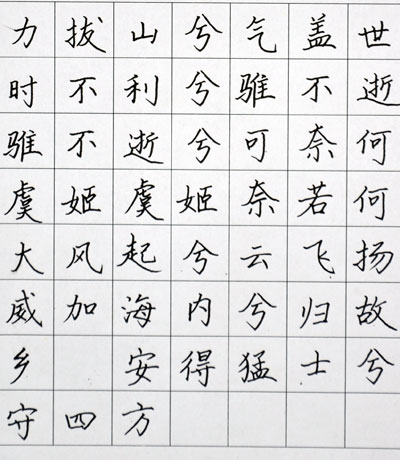 力拔山兮气盖世
时不利兮骓不逝
骓不逝兮可奈何
虞姬虞姬奈若何
大风起兮云飞扬
威加海内兮归故
乡 安得猛士兮
守四方